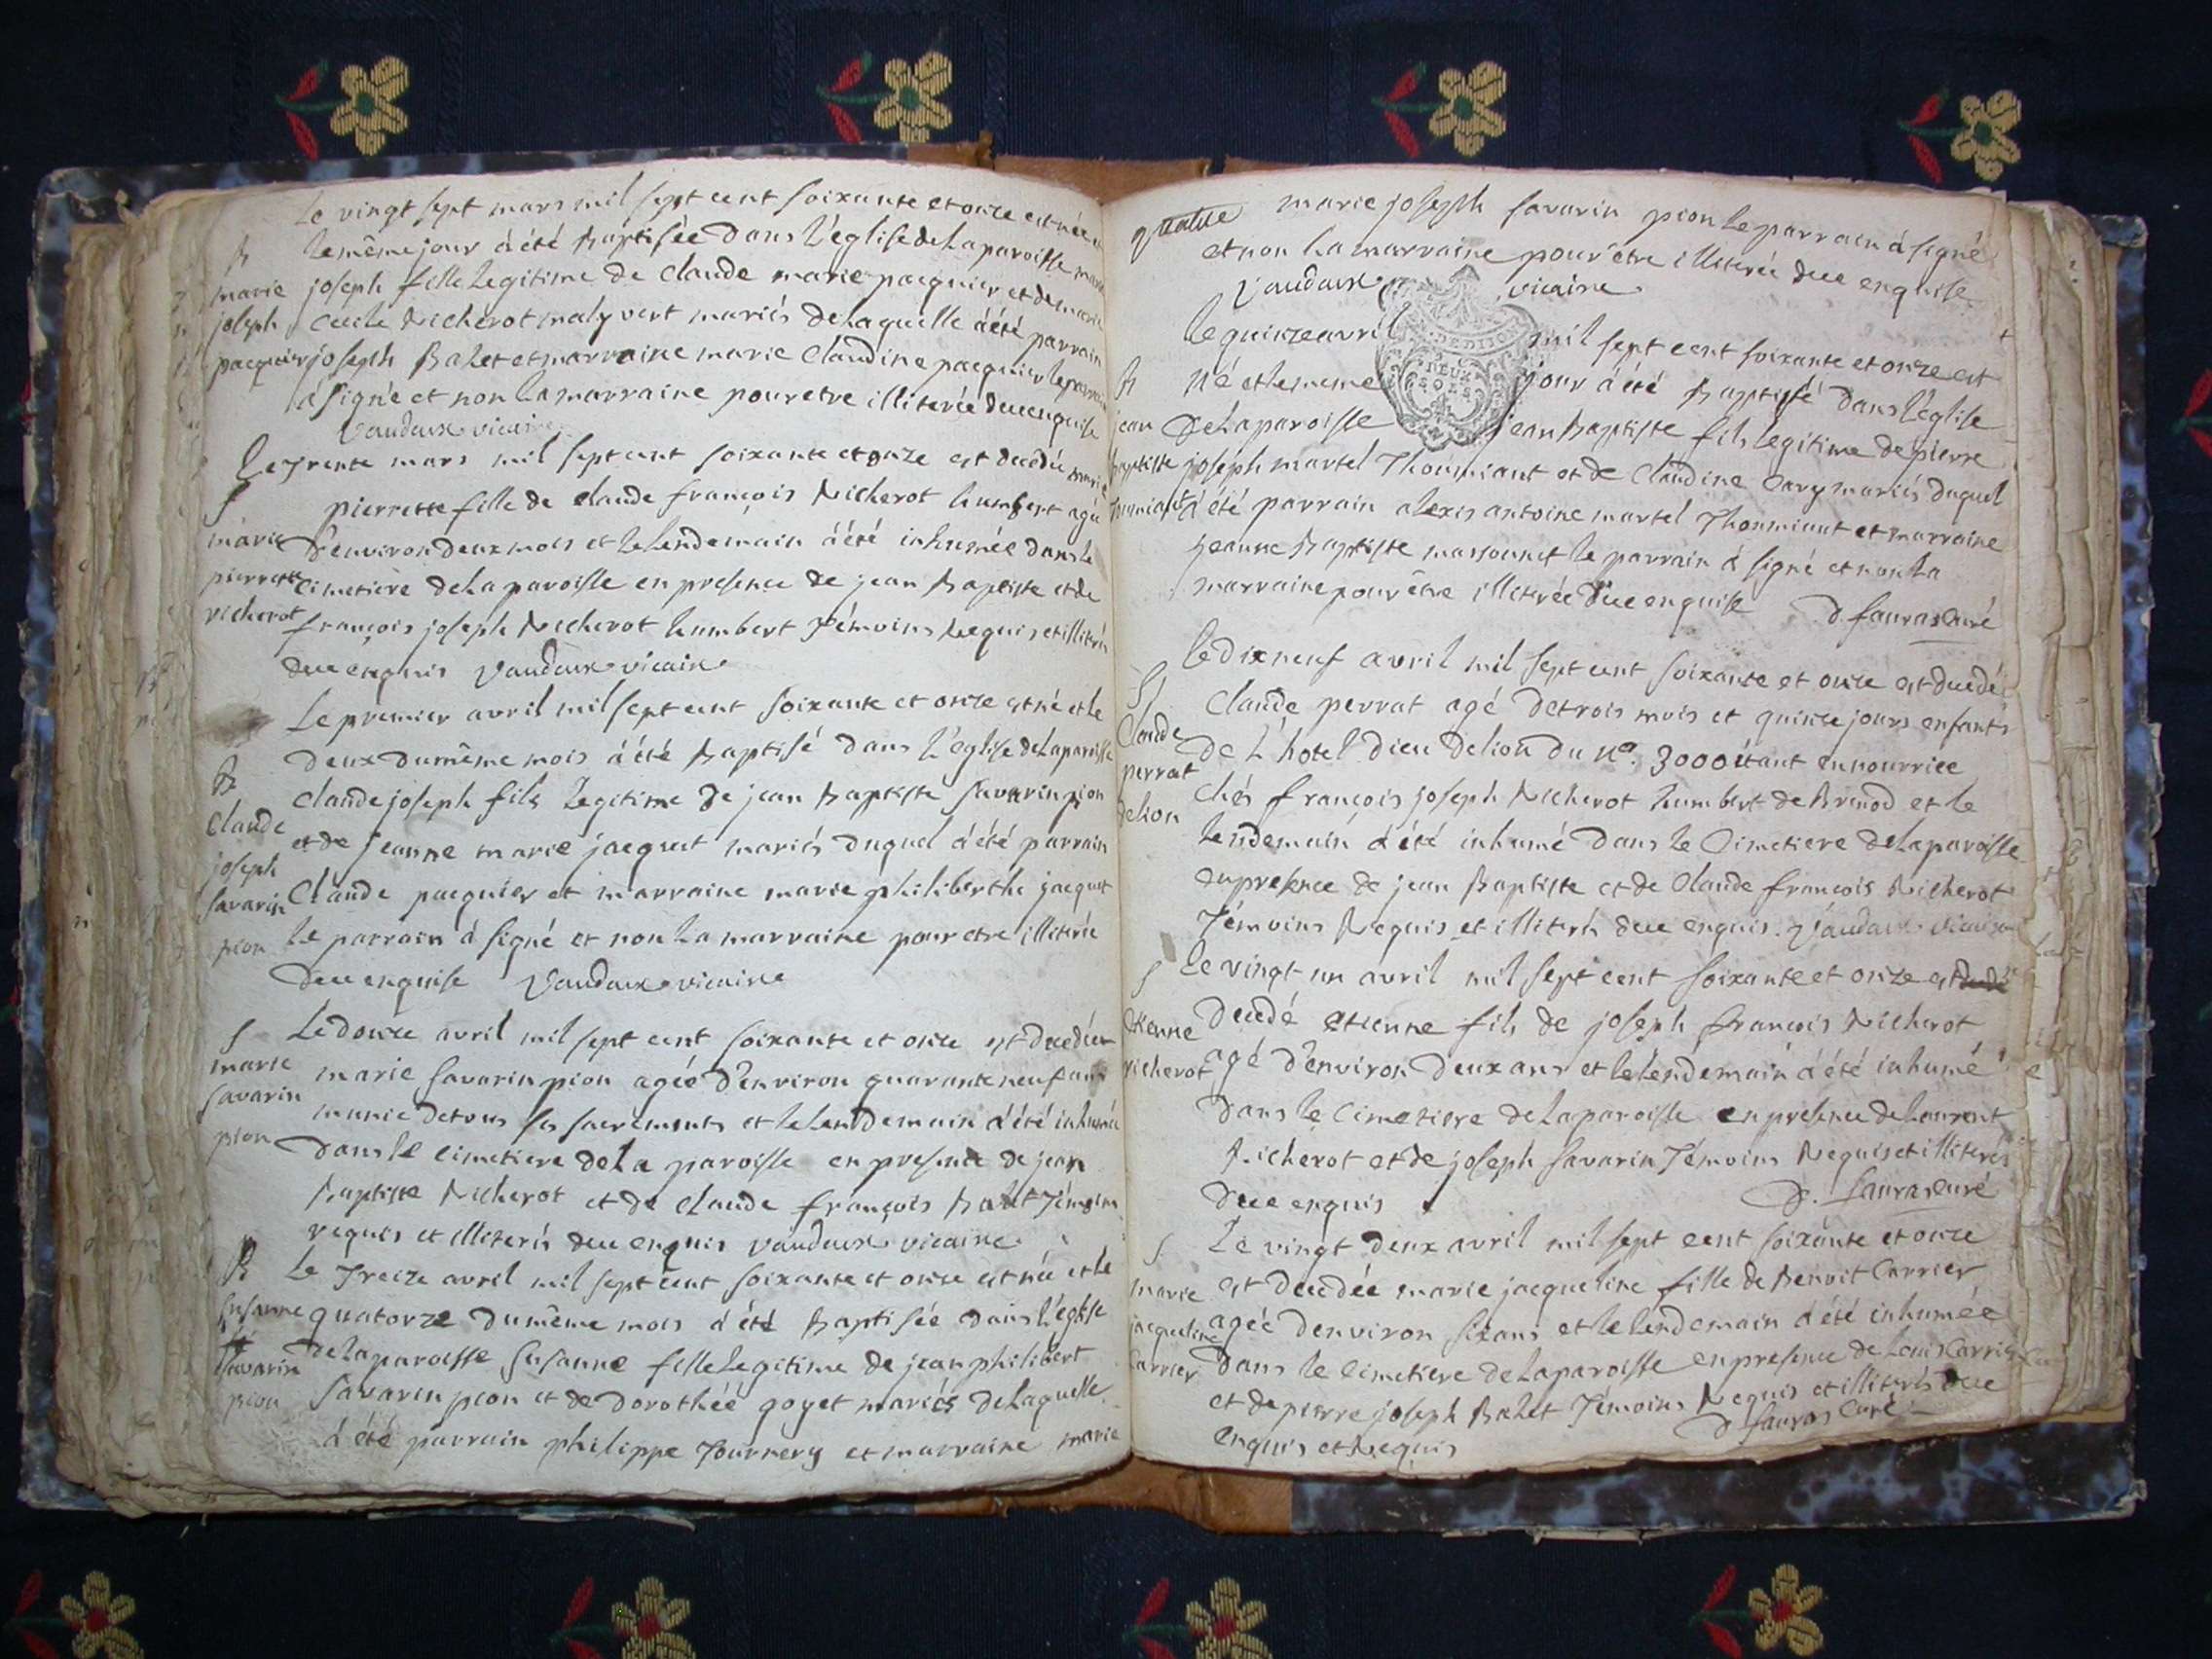 Le vingt sept mars mil sept cent soixante et onze est née et
B le même jour à été Baptisée Dans l'église de la paroisse marie
marie joseph fille legitime de claude marie pacquier et de marie
joseph Cecile Richerot malyvert mariés de laquelle à été parrain
pacquier joseph Balet et marraine marie Claudine pacquier le parrain
à signé et non la marraine pour etre illiterée duee enquise
Vaudaux vicaire
Le trente mars mil sept cent soixante et onze est decedée marie
S pierrette fille de claude françois Richerot humbert agée
marie D'environ deux mois et le lendemain à été inhumée dans le
pierrette Cimetière de la paroisse en presence de jean Baptiste et de
richerot françois joseph Richerot humbert Témoins Requis et illiterés
duee enquis Vaudaux vicaire
Le premier avril mil sept cent soixante et onze est né et le
deux du même mois à été Baptisé Dans l'église de la paroisse
B claude joseph fils legitime de jean Baptiste savarin pion
Claude et de jeanne marie jacquet mariés duquel à été parrain
joseph
savarin Claude pacquier et marraine marie philiberthe jacquet
pion le parrain à signé et non la marraine pour etre illiterée
duee enquise Vaudaux vicaire
S Le douze avril mil sept cent soixante et onze est decedée
marie marie savarin pion agée d'environ quarante neuf ans
savarin munie de tous ses sacrements et le lendemain à été inhumée
pion Dans le cimetiere de la paroisse en presence de jean
Baptiste Richerot et de claude françois Balet Témoins
requis et illiterés duee enquis Vaudaux vicaire
B Le Treize avril mil sept cent soixante et onze est née et le
susanne quatorze du même mois à été Baptisée Dans l'église
savarin de la paroisse susanne fille legitime de jean philibert
pion savarin pion et de dorothéé goyet mariés de laquelle
à été parrain philippe Tournery et marraine marie
marie joseph savarin pion le parrain à signé
et non la marraine pour être illiterée duee enquise
Vaudaux vicaire
DEUX SOLS
le quinze avril mil sept cent soixante et onze est
B né et le meme jour à été Baptisé Dans l'église
jean De la paroisse jean Baptiste fils legitime de pierre
baptiste joseph martel Thoumiant et de Claudine Cary mariés duquel
à été parrain alexis antoine martel Thoumiant et marraine
jeanne Baptiste massounet le parrain à signé et non la
marraine pour être illiterée duee enquise D. fauras Curé
le dix neuf avril mil sept cent soixante et onze est decedé
S Claude perrat agé de trois mois et quinze jours enfant
Claude de L'hotel Dieu de lion du N°. 3000 étant en nourrice
perrat chés françois joseph Richerot humbert de Brenod et le
de lion lendemain à été inhumé Dans le Cimetiere de la paroisse
en presence de jean Baptiste et de Claude françois Richerot
Témoins Requis et illiterés duee enquis. Vaudaux vicaire
S Le vingt un avril mil sept cent soixante et onze est
Etienne decedé etienne fils de joseph françois Richerot
richerot agé d'environ deux ans et le lendemain à été inhumé
Dans le Cimetiere de la paroisse en presence de Laurent
Richerot et de joseph savarin Témoins Requis et illiterés
duee enquis D. fauras curé
S Le vingt deux avril mil sept cent soixante et onze
marie est decedée marie jacqueline fille de Benoit Carrier
jacqueline agée denviron six ans et le lendemain à été inhumée
Carrier Dans le cimetiere de la paroisse en presence de Louis Carrier
et de pierre joseph Balet Témoins Requis et illiterés duee
enquis et Requis D fauras Curé